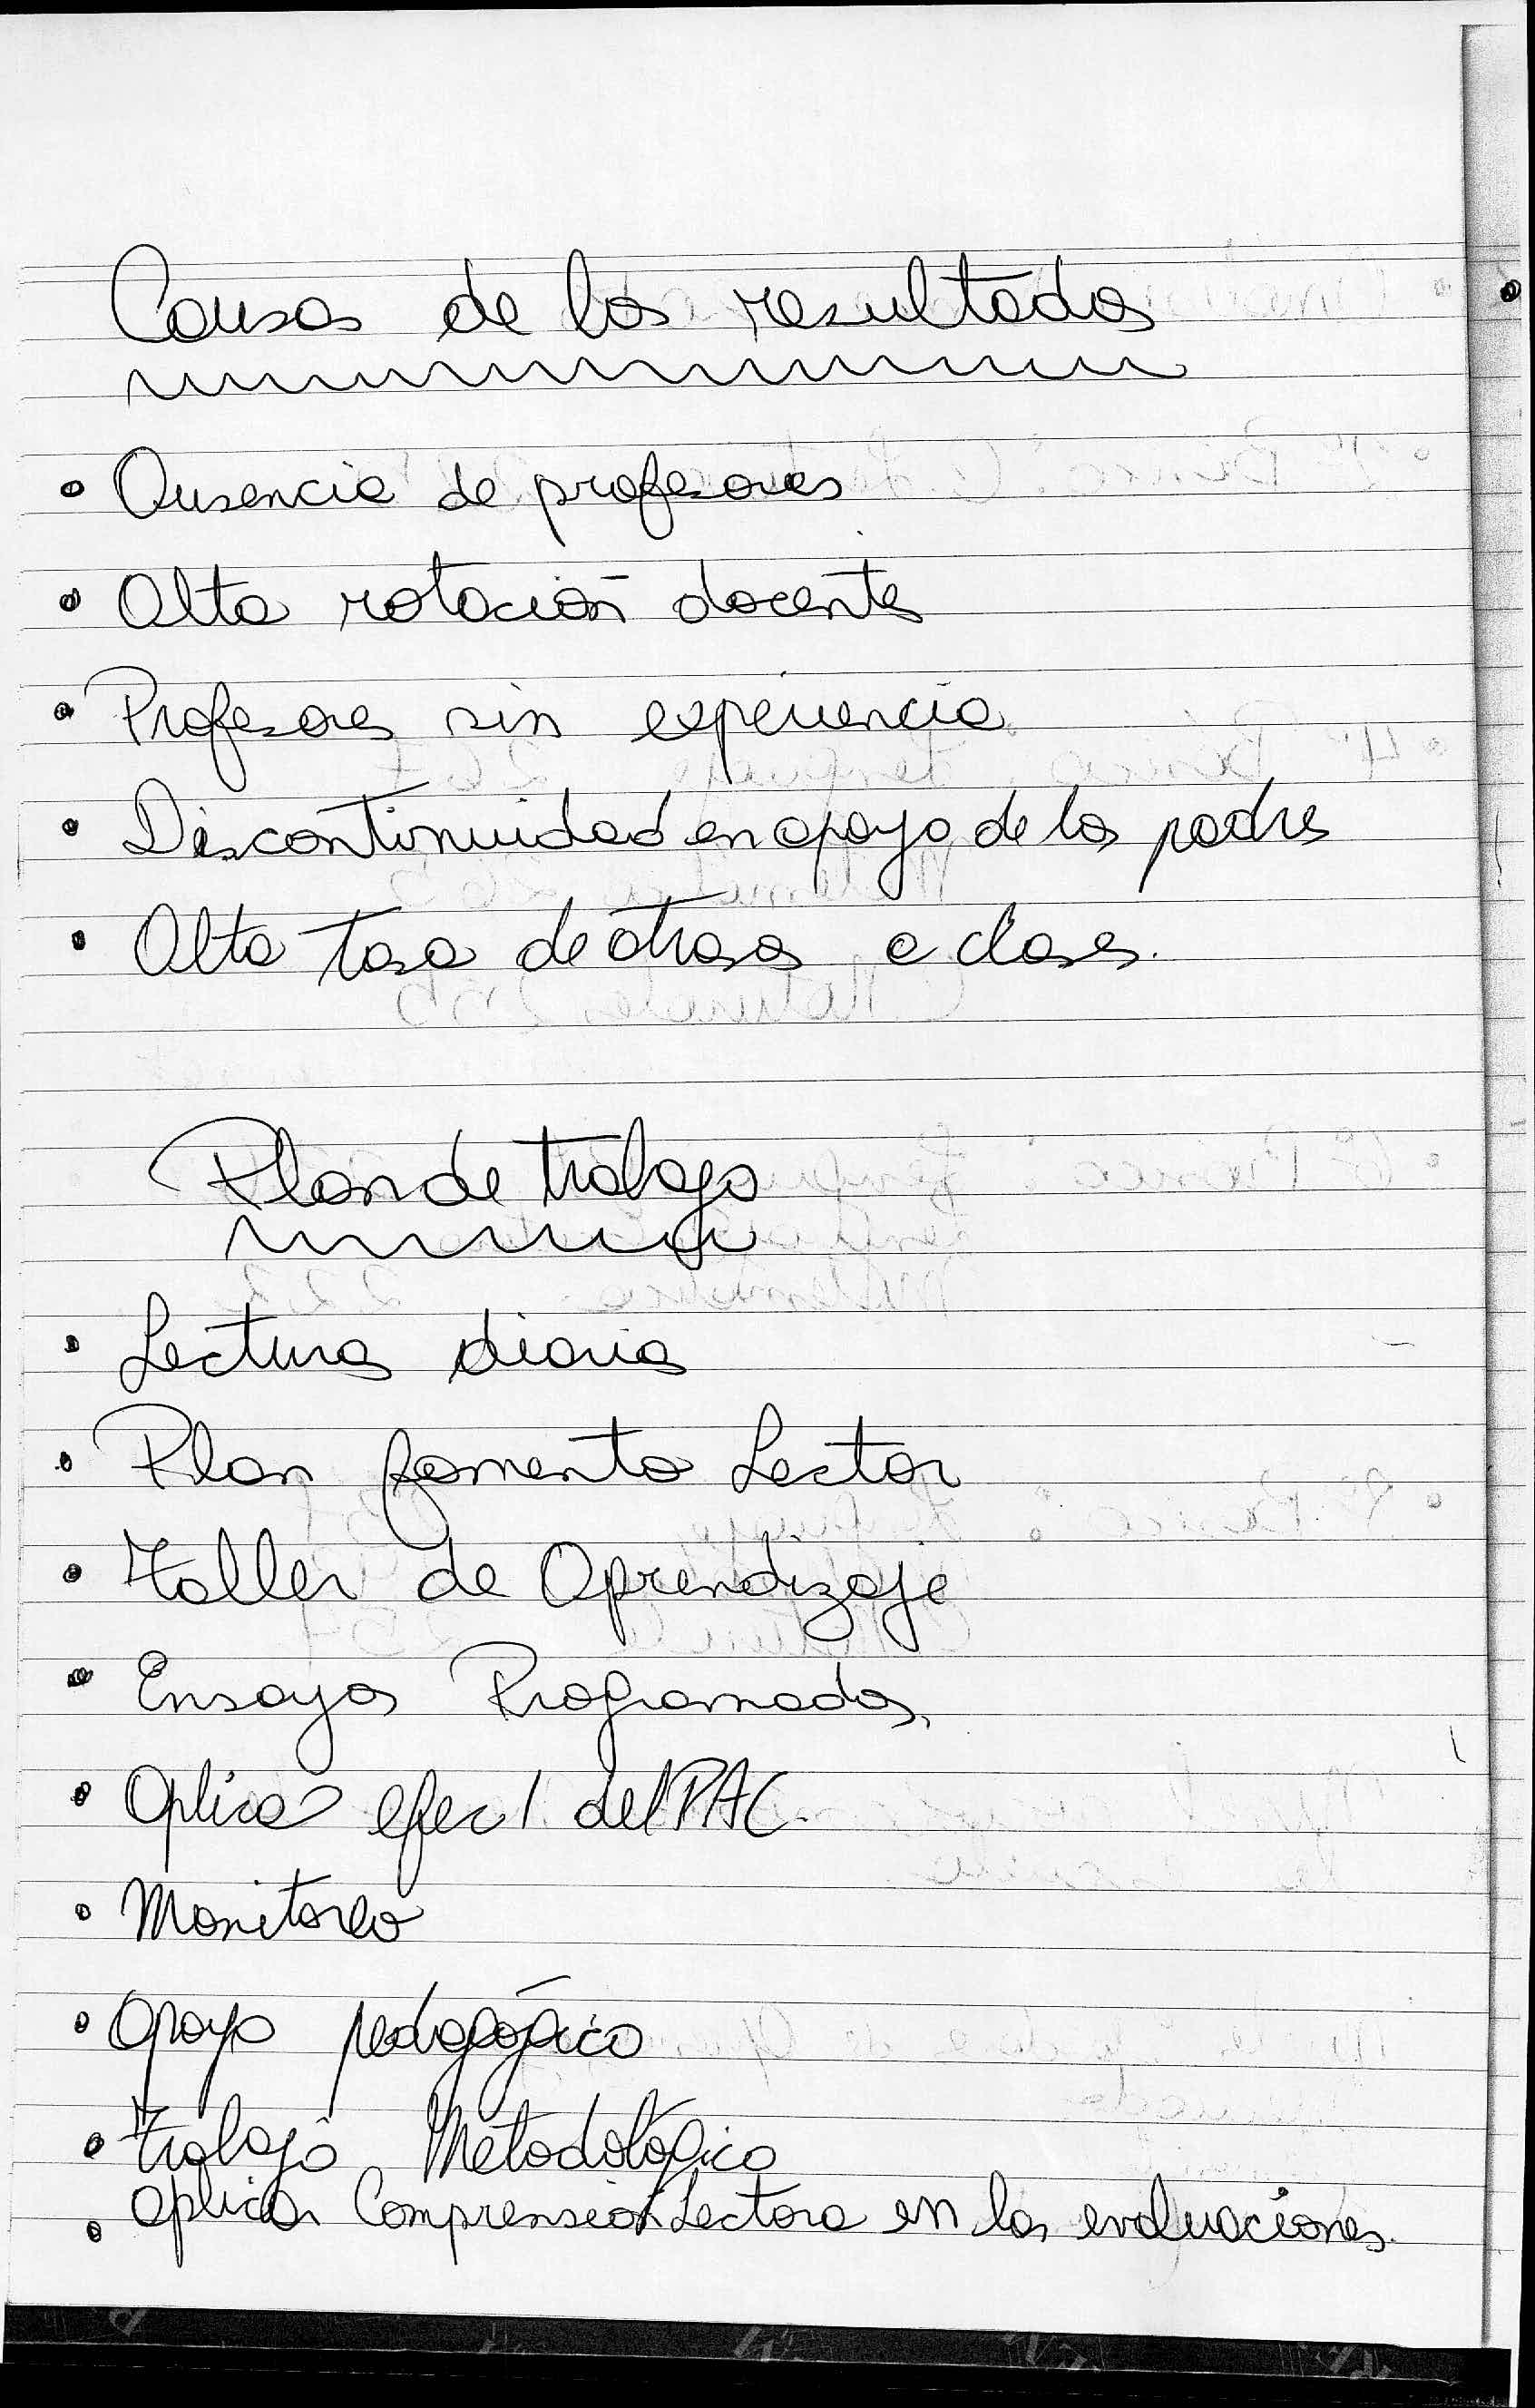 Causas de los resultados
• Ausencia de profesores
• Alta rotación docente
• Profesores sin experiencia
• Discontinuidad en apoyo de los padres
• Alta tasa de atrasos a clases.
Plan de trabajo
• Lectura diaria
• Plan fomento Lector
• Taller de Aprendizaje
• Ensayos Programados.
• Aplica efec/. del PAC.
• Monitoreo
• Apoyo pedagógico
• Trabajo Metodológico
• aplicar Comprensión Lectora en las evaluaciones.